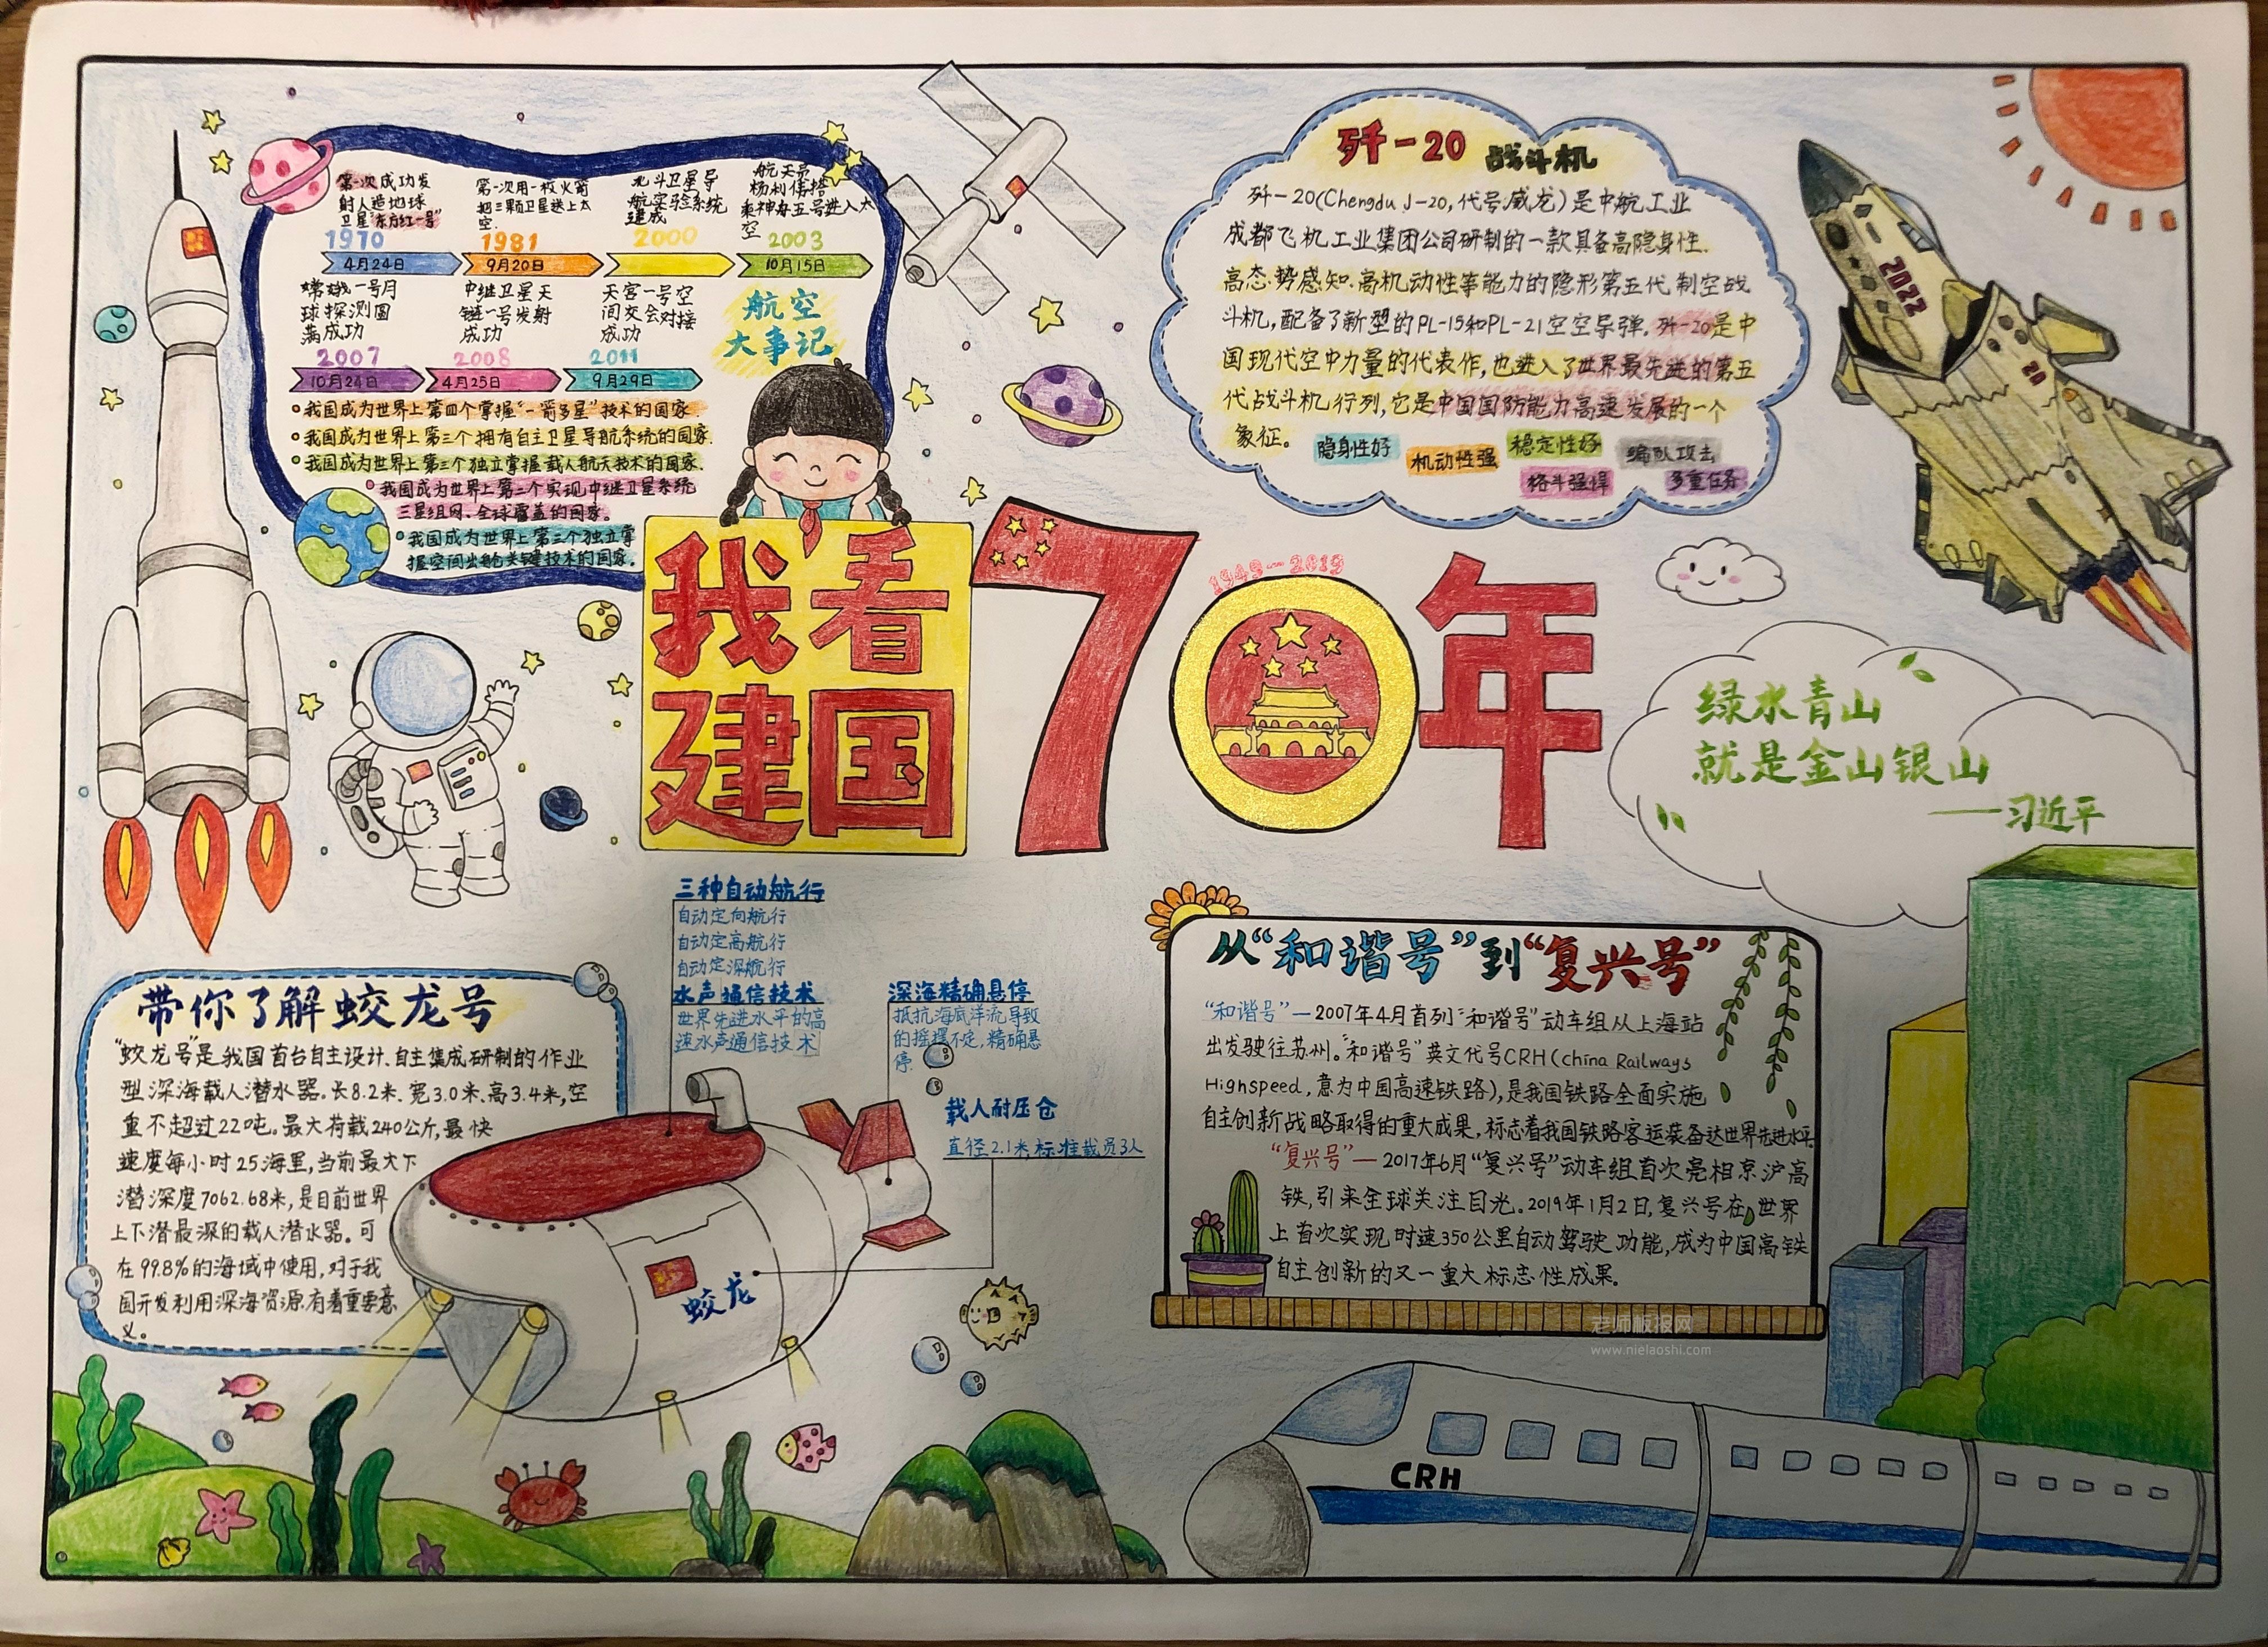 第一次成功发
射人造地球
卫星"东方红一号"
1970
4月24日
第一次用一枚火箭
把三颗卫星送上太
空.
1981
9月20日
北斗卫星导
航实验系统
建成
2000
航天员
杨利伟搭
乘神舟五号进入太
空
2003
10月15日
嫦娥一号月
球探测圆
满成功
2007
10月24日
中继卫星天
链一号发射
成功
2008
4月25日
天宫一号空
间交会对接
成功
2011
9月29日
航空
大事记
我国成为世界上第四个掌握"一箭多星"技术的国家.
我国成为世界上第三个拥有自主卫星导航系统的国家.
我国成为世界上第三个独立掌握载人航天技术的国家.
我国成为世界上第二个实现中继卫星系统
三星组网、全球覆盖的国家。
我国成为世界上第三个独立掌
握空间出舱关键技术的国家.
歼-20 战斗机
歼-20(Chengdu J-20,代号:威龙)是中航工业
成都飞机工业集团公司研制的一款具备高隐身性.
高态势感知.高机动性等能力的隐形第五代制空战
斗机,配备了新型的PL-15和PL-21空空导弹.歼-20是中
国现代空中力量的代表作,也进入了世界最先进的第五
代战斗机行列,它是中国国防能力高速发展的一个
象征。
隐身性好
机动性强
稳定性好
编队攻击
格斗强悍
多重任务
2022
20
我看
建国
1949-2019
70年
绿水青山
就是金山银山
——习近平
三种自动航行
自动定向航行
自动定高航行
自动定深航行
水声通信技术
世界先进水平的高
速水声通信技术
深海精确悬停
抵抗海底洋流导致
的摇摆不定,精确悬
停.
载人耐压仓
直径2.1米,标准载员3人
带你了解蛟龙号
"蛟龙号"是我国首台自主设计.自主集成研制的作业
型深海载人潜水器.长8.2米.宽3.0米.高3.4米,空
重不超过22吨.最大荷载240公斤,最快
速度每小时25海里,当前最大下
潜深度7062.68米,是目前世界
上下潜最深的载人潜水器。可
在99.8%的海域中使用,对于我
国开发利用深海资源有着重要意
义。
蛟龙
从"和谐号"到"复兴号"
"和谐号"—2007年4月首列"和谐号"动车组从上海站
出发驶往苏州。"和谐号"英文代号CRH(china Railways
Highspeed,意为中国高速铁路),是我国铁路全面实施
自主创新战略取得的重大成果,标志着我国铁路客运装备达世界先进水平.
"复兴号"—2017年6月"复兴号"动车组首次亮相京沪高
铁,引来全球关注目光.2019年1月2日,复兴号在世界
上首次实现时速350公里自动驾驶功能,成为中国高铁
自主创新的又一重大标志性成果.
老师板报网
www.nielaoshi.com
CRH